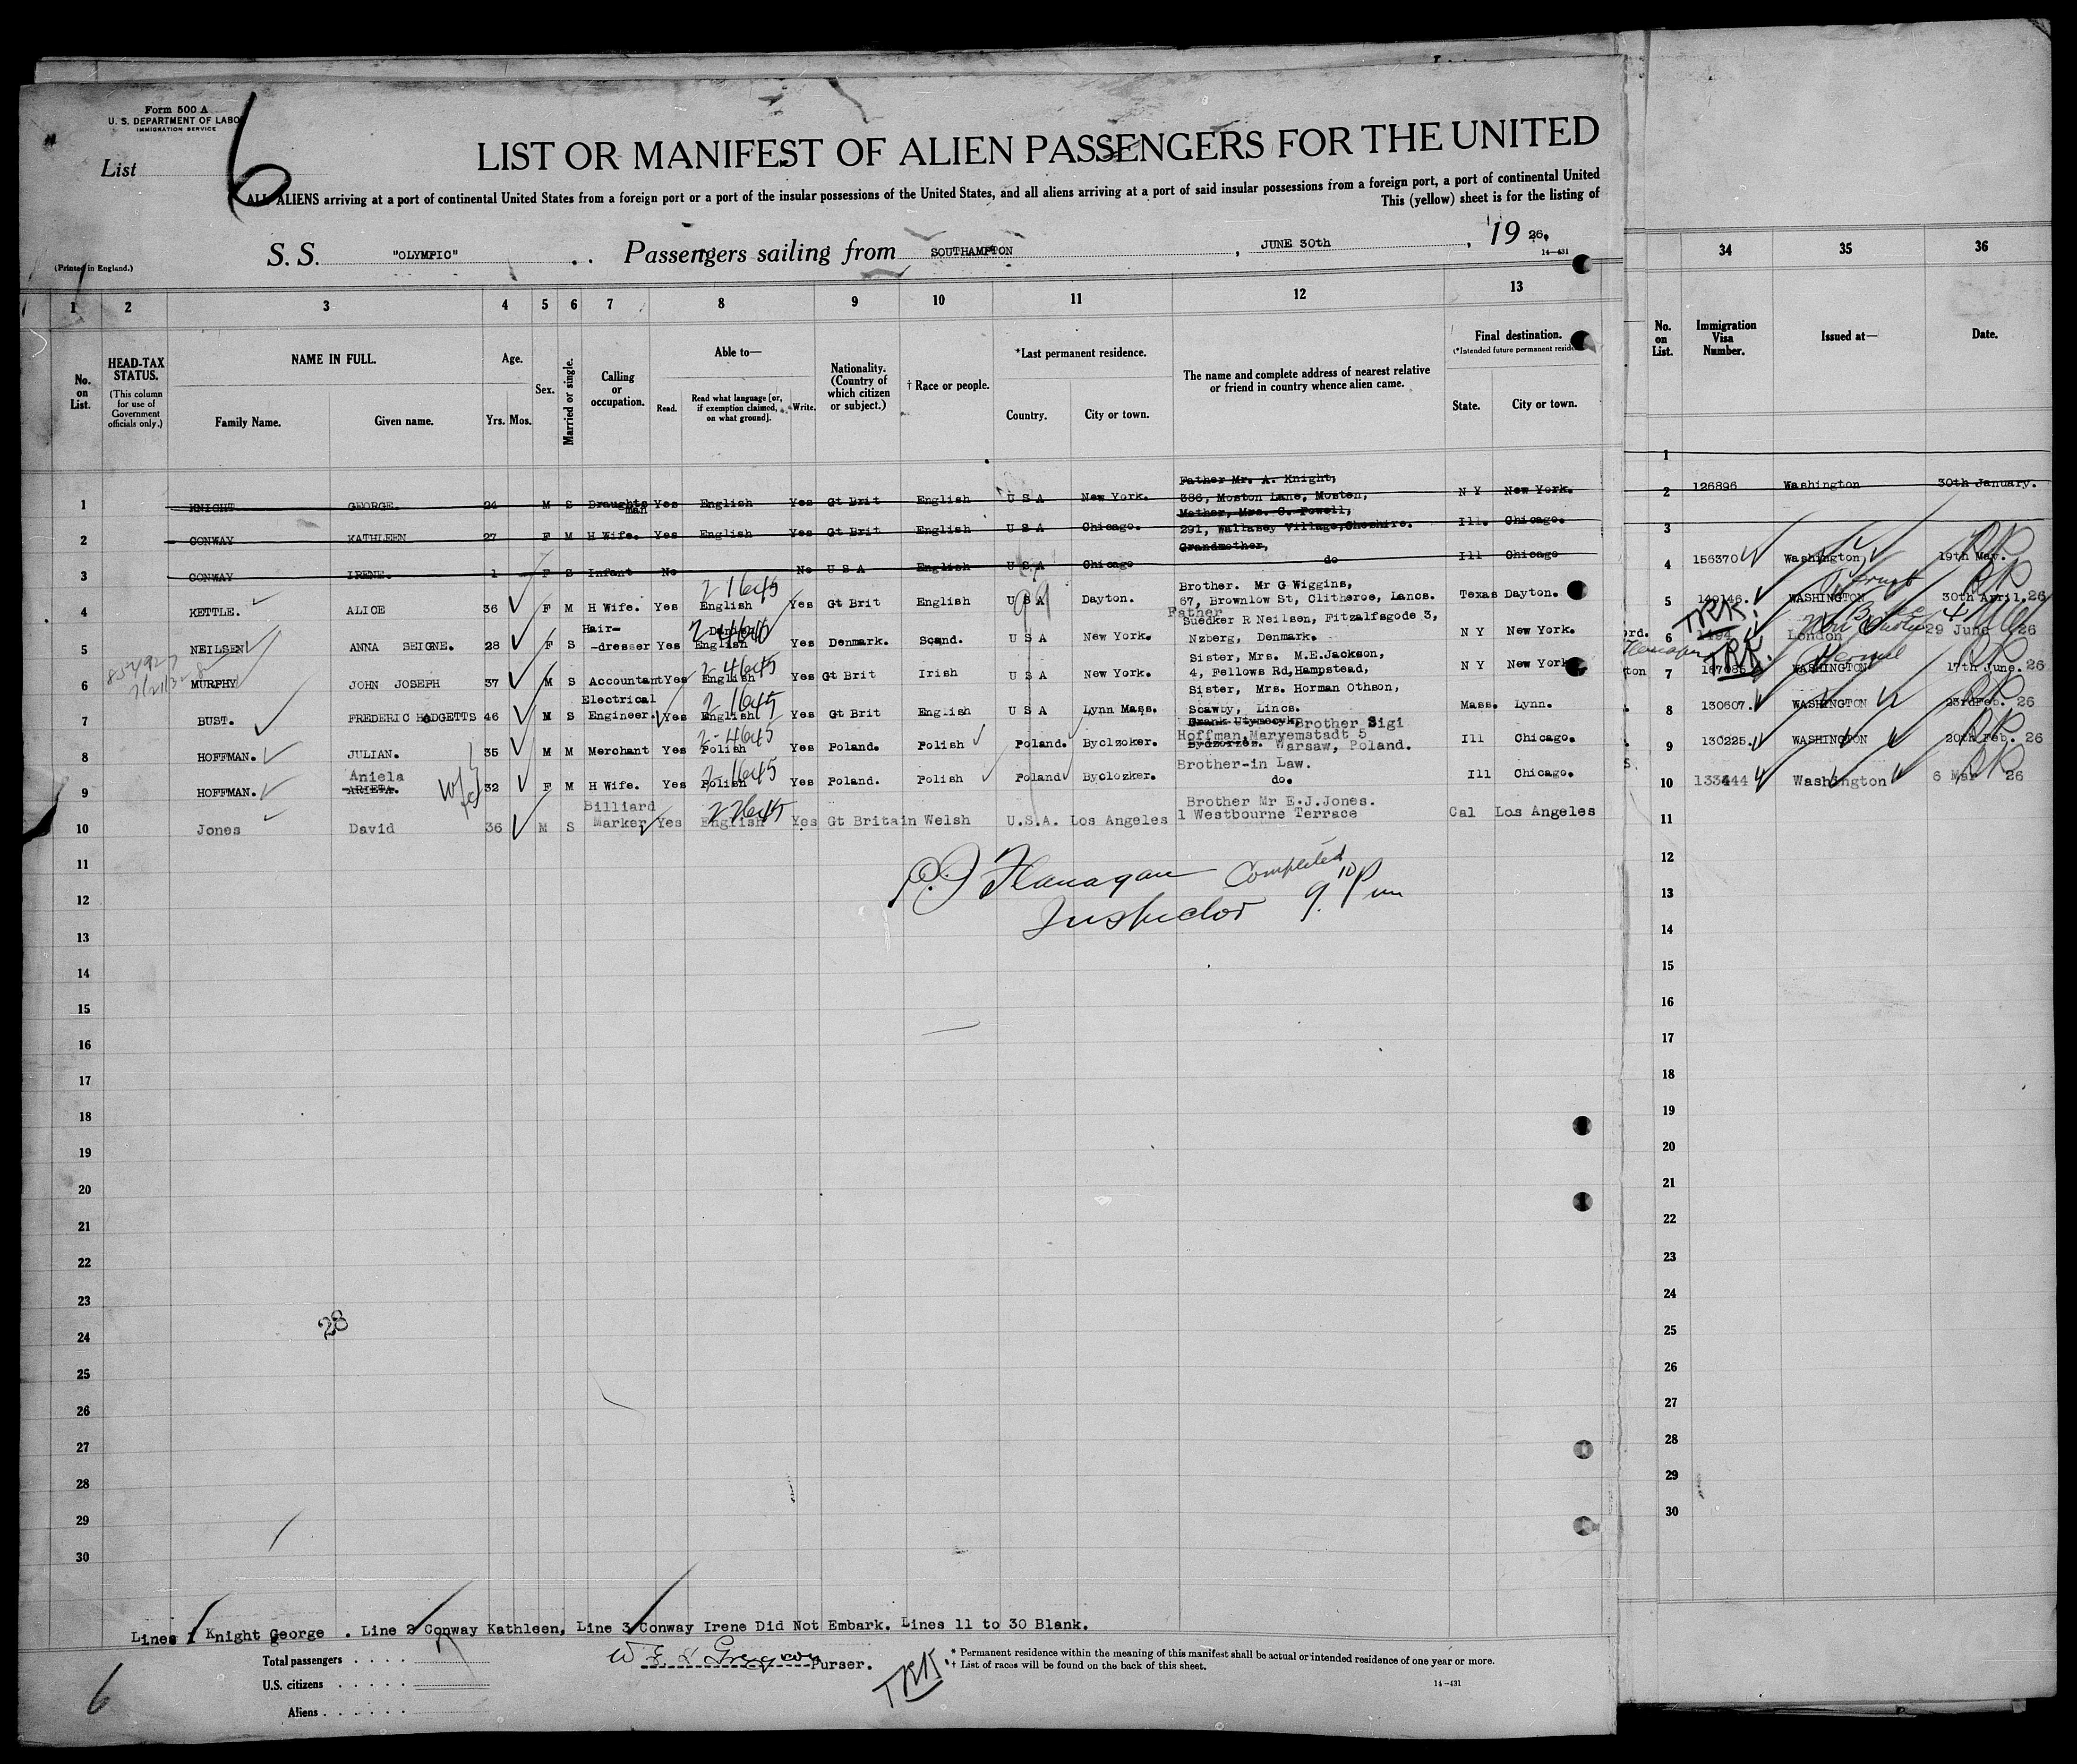 Form 500 A
U. S. DEPARTMENT OF LABO
IMMIGRATION SERVICE
List 6
LIST OR MANIFEST OF ALIEN PASSENGERS FOR THE UNITED
ALL ALIENS arriving at a port of continental United States from a foreign port or a port of the insular possessions of the United States, and all aliens arriving at a port of said insular possessions from a foreign port, a port of continental United
This (yellow) sheet is for the listing of
S. S. "OLYMPIC" Passengers sailing from SOUTHAMPTON, JUNE 30th, 19 26.
(Printed in England.)
14-431
1 2 3 4 5 6 7 8 9 10 11 12 13 34 35 36
No. on List.
HEAD-TAX STATUS.
(This column for use of Government officials only.)
NAME IN FULL.
Family Name. Given name.
Age.
Yrs. Mos.
Sex.
Married or single.
Calling or occupation.
Able to—
Read. Read what language [or, if exemption claimed, on what ground]. Write.
Nationality. (Country of which citizen or subject.)
† Race or people.
*Last permanent residence.
Country. City or town.
The name and complete address of nearest relative or friend in country whence alien came.
Final destination.
(*Intended future permanent reside
State. City or town.
No. on List.
Immigration Visa Number.
Issued at—
Date.
1 KNIGHT GEORGE. 24 M S Draughts man Yes English Yes Gt Brit English U S A New York. Father Mr. A. Knight, 386, Moston Lane, Mosten, N Y New York.
2 CONWAY KATHLEEN 27 F M H Wife. Yes English Yes Gt Brit English U S A Chicago. Mother, Mrs. C. Powell, 291, Wallasey Village, Cheshire. Ill. Chicago.
3 CONWAY IRENE. 1 F S Infant No No U S A English U S A Chicago Grandmother, do Ill Chicago
4 KETTLE. ALICE 36 F M H Wife. Yes English 2-1645 Yes Gt Brit English U S A Dayton. Brother. Mr G Wiggins, 67, Brownlow St, Clitheroe, Lancs. Texas Dayton.
5 NEILSEN ANNA SEIGNE. 28 F S Hair- -dresser Yes English Yes Denmark. Scand. U S A New York. Father Suedker R Neilsen, Fitzalfsgode 3, Nzberg, Denmark. N Y New York.
6 MURPHY JOHN JOSEPH 37 M S Accountant Yes English 2-4645 Yes Gt Brit Irish U S A New York. Sister, Mrs. M.E.Jackson, 4, Fellows Rd,Hampstead, N Y New York
7 BUST. FREDERIC HODGETTS 46 M S Electrical Engineer. Yes English 2-1645 Yes Gt Brit English U S A Lynn Mass. Sister, Mrs. Horman Othson, Scawby, Lincs. Mass. Lynn.
8 HOFFMAN. JULIAN. 35 M M Merchant Yes Polish 2-4645 Yes Poland. Polish Poland. Byclzoker. Brother Sigi Hoffman, Maryemstadt 5 Warsaw, Poland. Ill Chicago.
9 HOFFMAN. Aniela ARIETA. 32 F M H Wife. Yes Polish 2-1645 Yes Poland. Polish Poland Byclozker. Brother-in Law. do. Ill Chicago.
10 Jones David 36 M S Billiard Marker Yes English Yes Gt Britain Welsh U.S.A. Los Angeles Brother Mr E.J.Jones. 1 Westbourne Terrace Cal Los Angeles
11
12
13
14
15
16
17
18
19
20
21
22
23
24
25
26
27
28
29
30
P.J Flanagan Completed
Inspector 9.10 Pm
28
1
2 126896 Washington 30th January.
3
4 156370 Washington 19th May.
5 149146. WASHINGTON 30th April. 26
6 London 29 June 26
7 WASHINGTON 17th June. 26
8 130607. WASHINGTON 23rdFeb. 26
9 130225. WASHINGTON 20th Feb. 26
10 133444 Washington 6 Mar 26
11
12
13
14
15
16
17
18
19
20
21
22
23
24
25
26
27
28
29
30
Lines 1 Knight George . Line 2 Conway Kathleen, Line 3 Conway Irene Did Not Embark. Lines 11 to 30 Blank.
Total passengers
U.S. citizens
Aliens
Purser.
TRK.
* Permanent residence within the meaning of this manifest shall be actual or intended residence of one year or more.
† List of races will be found on the back of this sheet.
14-431
6